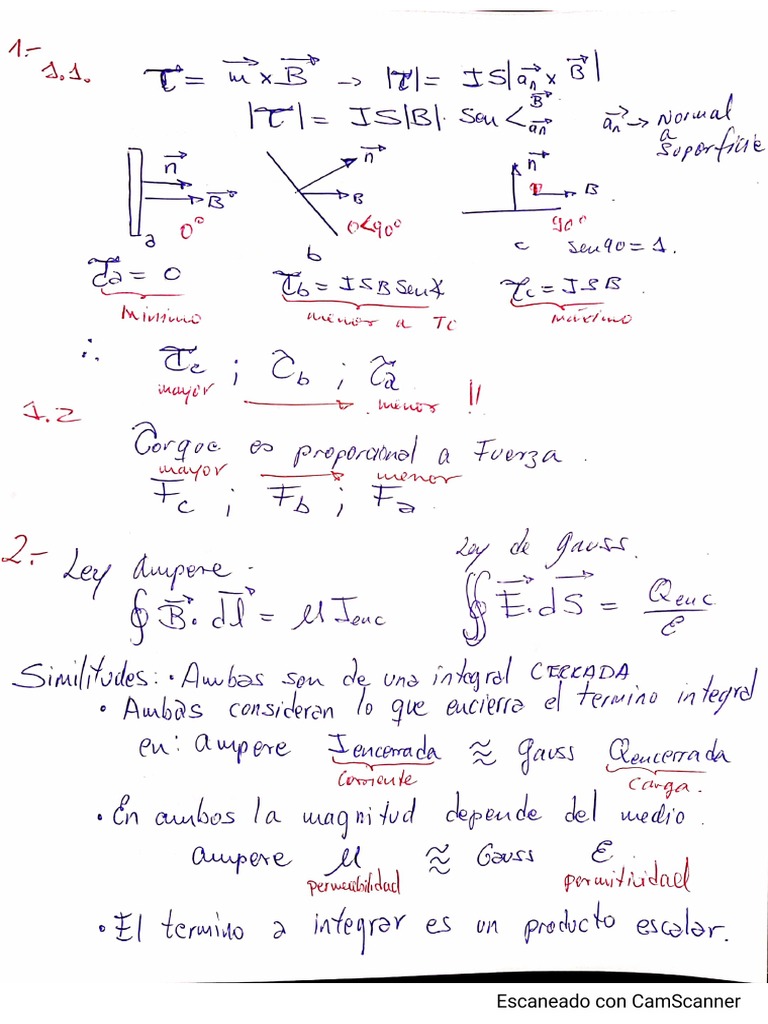 1.-
1.1. τ = m⃗ x B⃗ → |τ| = IS|a⃗n x B⃗|
|τ| = IS|B| · Sen < B⃗ a⃗n   a⃗n → Normal a superficie
n⃗ B⃗ 0° a
n⃗ B 0<90° b
n⃗ B 90° c sen90 = 1.
τa = 0   τb = ISB Sen∡   τc = ISB
Minimo   menor a Tc   máximo
∴ τc ; τb ; τa
mayor → menor !!
1.2
Torque es proporcional a Fuerza.
mayor → menor
Fc ; Fb ; Fa.
2.- Ley ampere.   Ley de gauss.
∮ B⃗ · dl⃗ = μ Ienc   ∯ E⃗ · dS⃗ = Qenc/ε
Similitudes: · Ambas son de una integral CERRADA
· Ambas consideran lo que encierra el termino integral
en: ampere Iencerrada ≈ gauss Qencerrada
Corriente   carga.
· En ambos la magnitud depende del medio.
ampere μ ≈ Gauss ε
permeabilidad   permitividad
· El termino a integrar es un producto escalar.
Escaneado con CamScanner